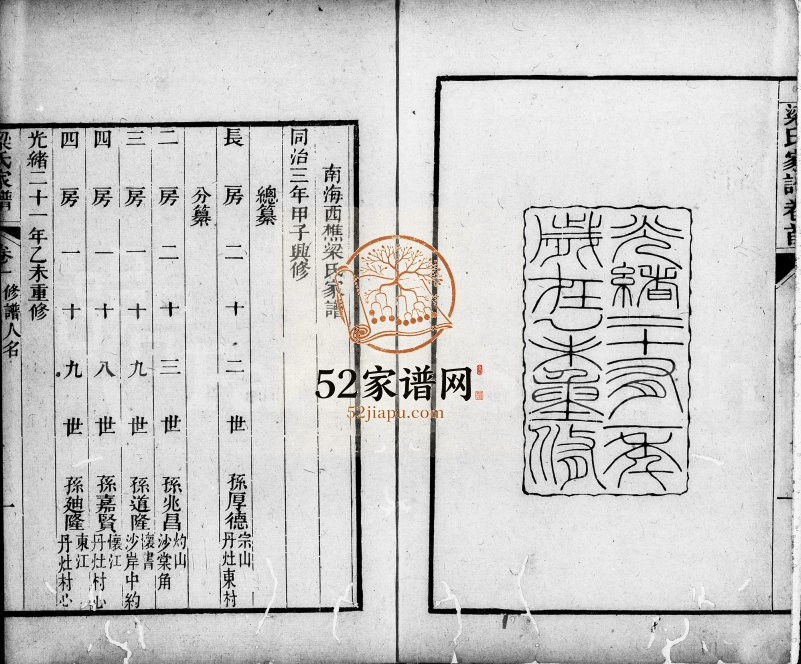 梁氏家譜卷首
光緒二十有一年
歲在乙未重修
南海西樵梁氏家譜
同治三年甲子興修
總纂
長房二十二世孫厚德宗山丹灶東村
分纂
二房二十三世孫兆昌灼山沙棠角
三房一十九世孫道隆懷書沙岸中約
四房一十八世孫嘉賢懷江丹灶村心
四房一十九世孫廸隆東江丹灶村心
光緒二十一年乙未重修
梁氏家譜 卷 修譜人名 一
52家谱网
52jiapu.com